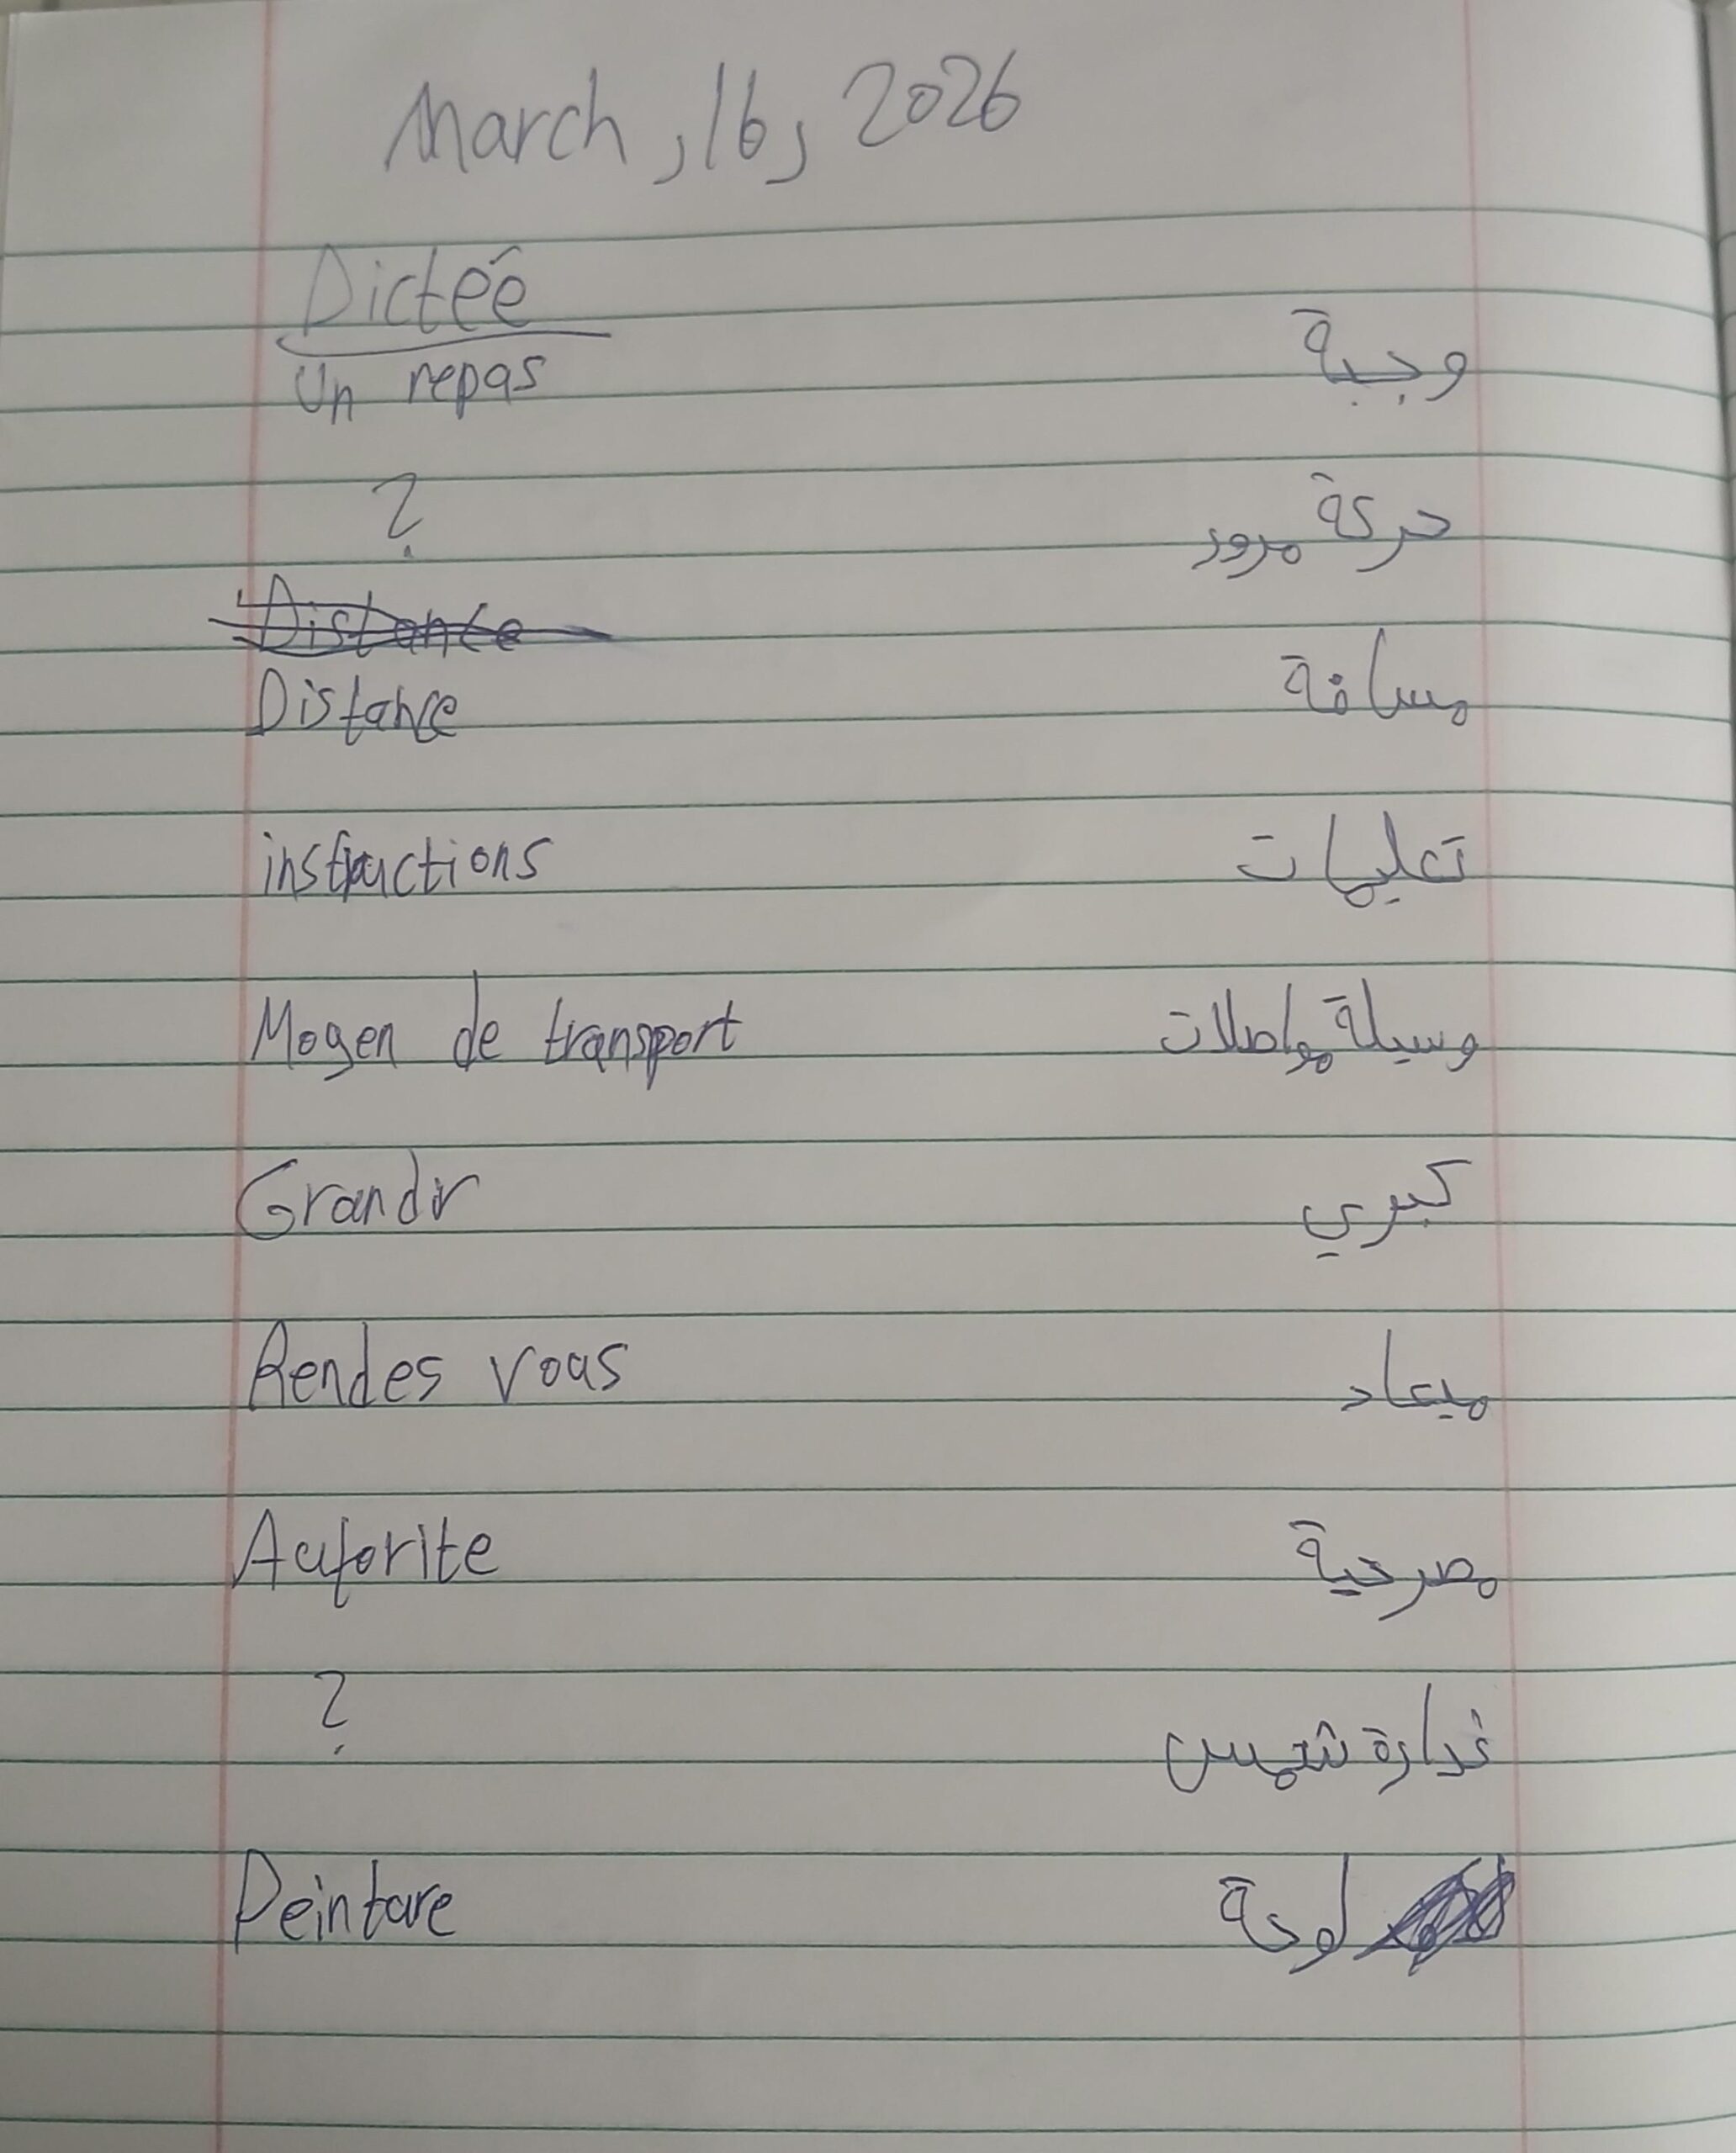 March, 16, 2026
Dictée
Un repas وجبة
? حركة مرور
Distance
Distance مسافة
instructions تعليمات
Mogen de transport وسيلة مواصلات
Grandir كبري
Rendes vous ميعاد
Autorite مصرحية
? نظارة شمس
Peinture لوحة